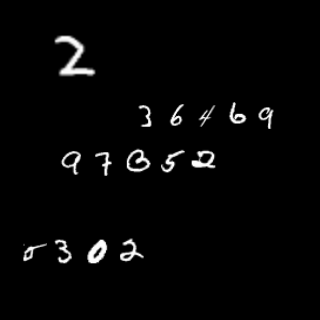 2
36469
97352
5302